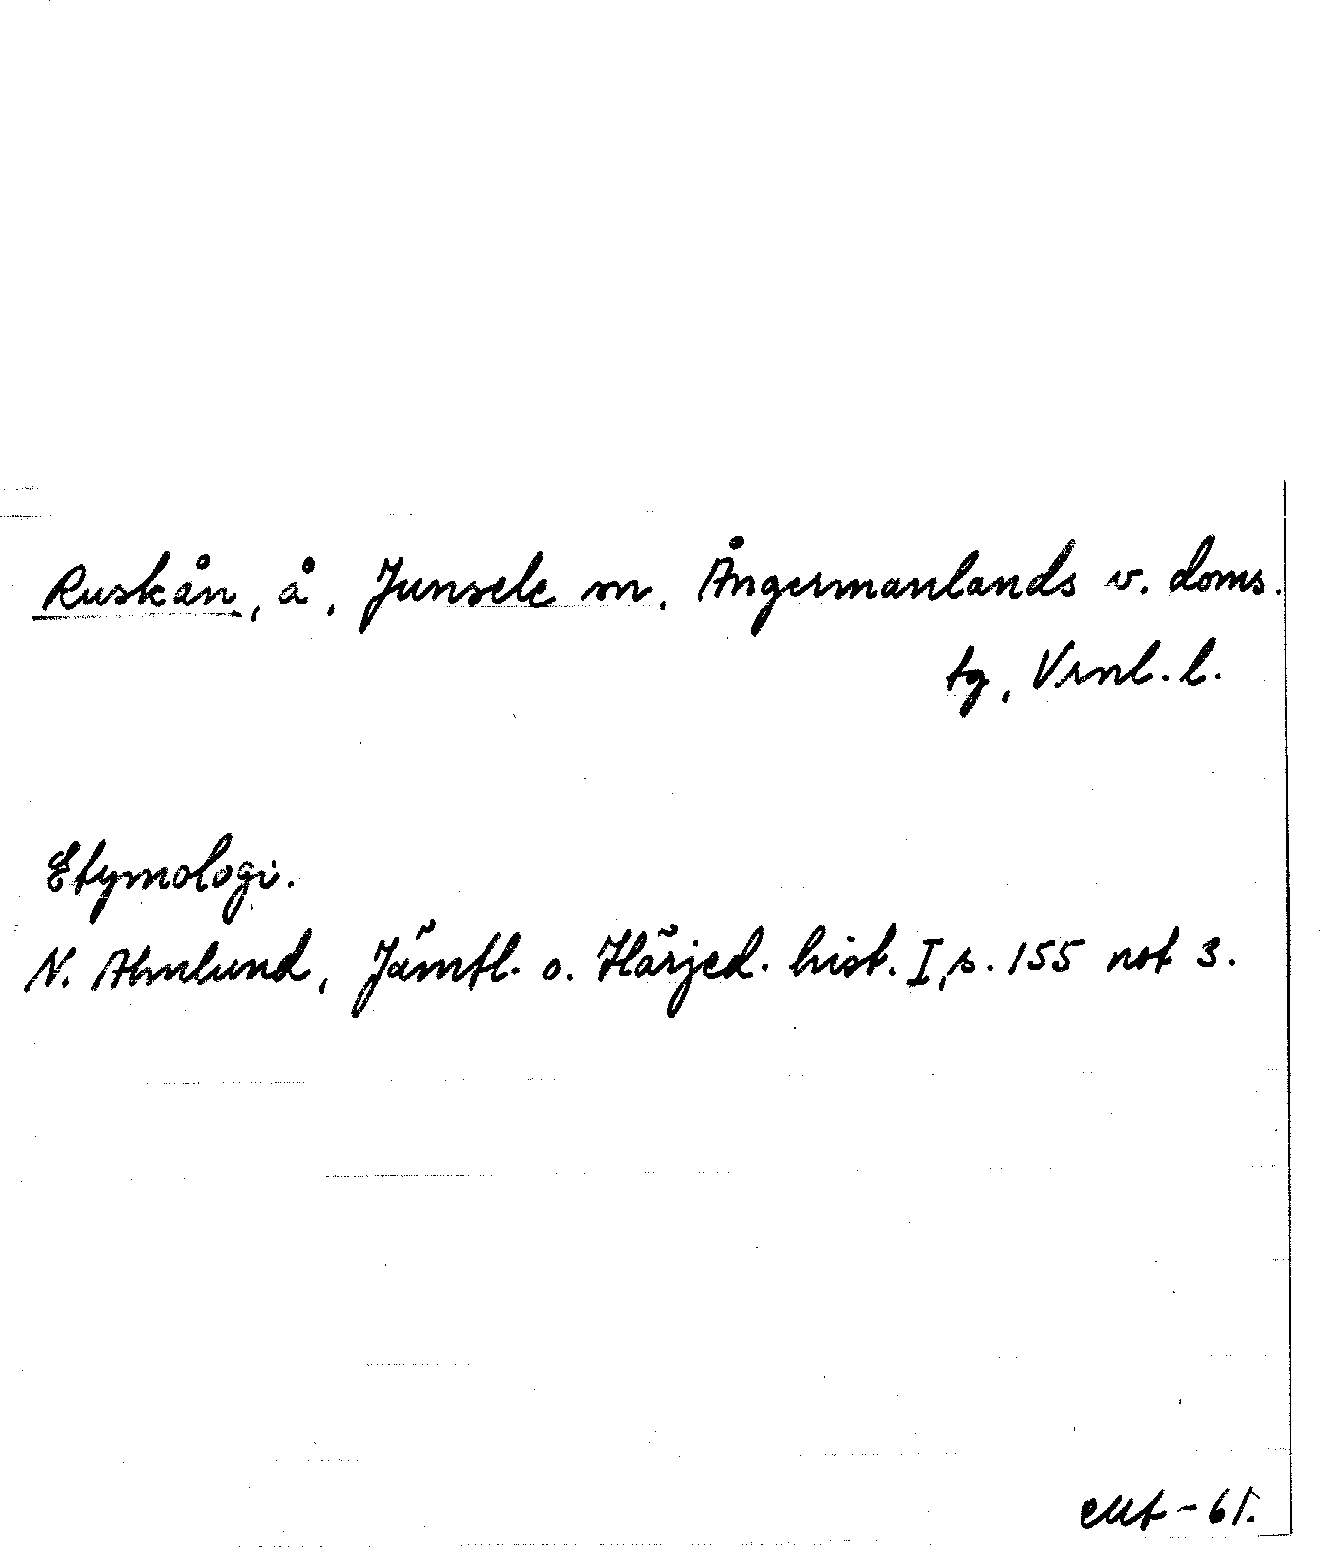 Ruskån, å, Junsele sn, Ångermanlands v. doms.
tg, Vrnl. l.
Etymologi.
N. Ahnlund, Jämtl. o. Härjed. hist. I, s. 155 not 3.
-61.